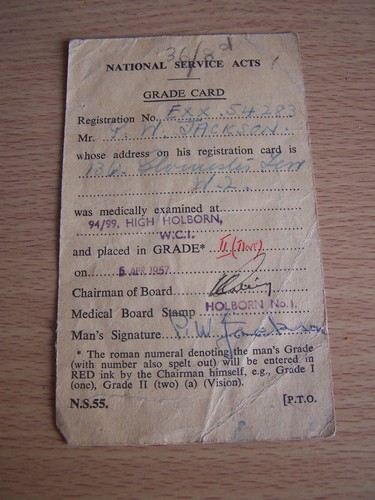 36/
NATIONAL SERVICE ACTS
GRADE CARD
Registration No. FXX 54283
Mr. T. W. JACKSON.
whose address on his registration card is
136. Gloucester Terr
W.2.
was medically examined at
94/99, HIGH HOLBORN,
W.C.1.
and placed in GRADE* II (Two)
on 5 APR 1957
Chairman of Board
Medical Board Stamp HOLBORN No. 1.
Man's Signature W Jackson
* The roman numeral denoting the man's Grade
(with number also spelt out) will be entered in
RED ink by the Chairman himself, e.g., Grade I
(one), Grade II (two) (a) (Vision).
N.S.55. [P.T.O.